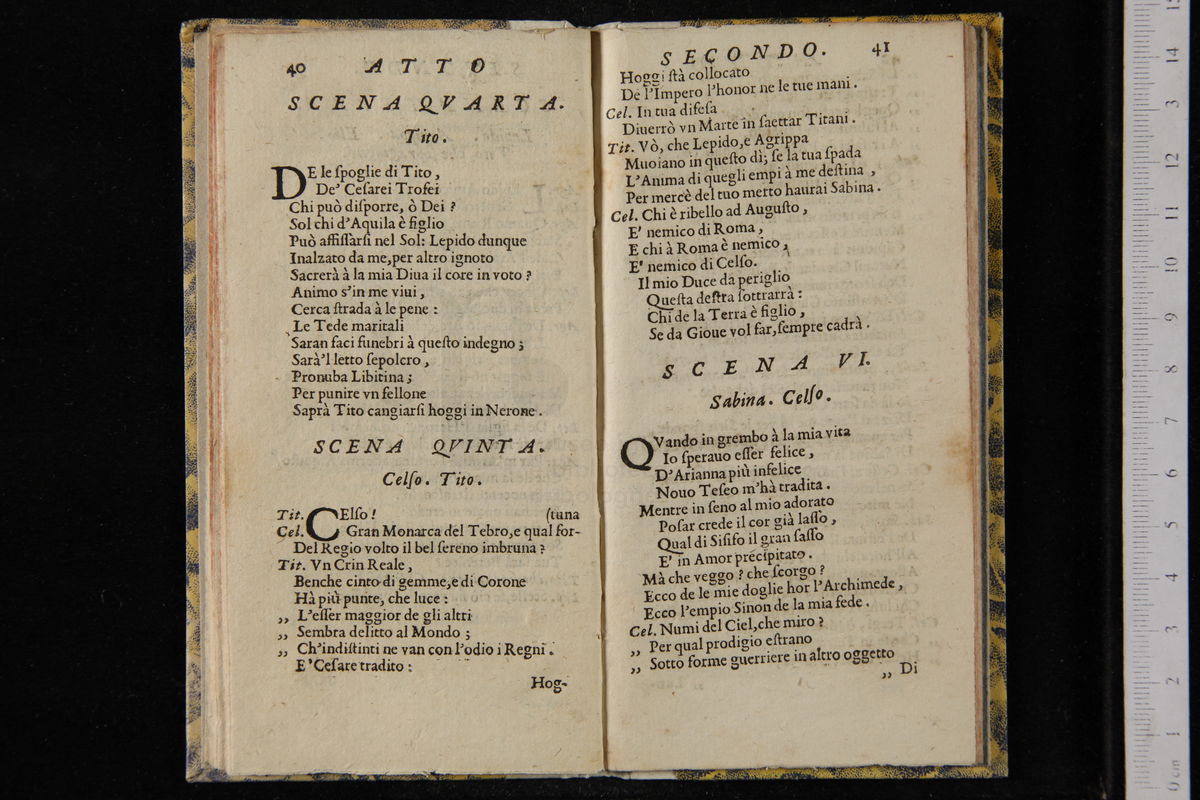 40 ATTO
SCENA QVARTA.
Tito.
DE le ſpoglie di Tito,
De' Ceſarei Trofei
Chi può diſporre, ò Dei?
Sol chi d'Aquila è figlio
Può affiſſarſi nel Sol: Lepido dunque
Inalzato da me, per altro ignoto
Sacrerà à la mia Diua il core in voto?
Animo s'in me viui,
Cerca ſtrada à le pene:
Le Tede maritali
Saran faci funebri à queſto indegno;
Sarà'l letto ſepolcro,
Pronuba Libitina;
Per punire vn fellone
Saprà Tito cangiarſi hoggi in Nerone.
SCENA QVINTA.
Celſo. Tito.
Tit. CElſo! (tuna
Cel. Gran Monarca del Tebro, e qual for-
Del Regio volto il bel ſereno imbruna?
Tit. Vn Crin Reale,
Benche cinto di gemme, e di Corone
Hà più punte, che luce:
„ L'eſſer maggior de gli altri
„ Sembra delitto al Mondo;
„ Ch'indiſtinti ne van con l'odio i Regni.
E' Ceſare tradito:
Hog-
SECONDO. 41
Hoggi ſtà collocato
De l'Impero l'honor ne le tue mani.
Cel. In tua difeſa
Diuerrò vn Marte in ſaettar Titani.
Tit. Vò, che Lepido, e Agrippa
Muoiano in queſto dì; ſe la tua ſpada
L'Anima di quegli empi à me deſtina,
Per mercè del tuo merto haurai Sabina.
Cel. Chi è ribello ad Auguſto,
E' nemico di Roma,
E chi à Roma è nemico,
E' nemico di Celſo.
Il mio Duce da periglio
Queſta deſtra ſottrarrà:
Chi de la Terra è figlio,
Se da Gioue vol far, ſempre cadrà.
SCENA VI.
Sabina. Celſo.
QVando in grembo à la mia vita
Io ſperauo eſſer felice,
D'Arianna più infelice
Nouo Teſeo m'hà tradita.
Mentre in ſeno al mio adorato
Poſar crede il cor già laſſo,
Qual di Siſifo il gran ſaſſo
E' in Amor precipitato.
Mà che veggo? che ſcorgo?
Ecco de le mie doglie hor l'Archimede,
Ecco l'empio Sinon de la mia fede.
Cel. Numi del Ciel, che miro?
„ Per qual prodigio eſtrano
„ Sotto forme guerriere in altro oggetto
„ Di